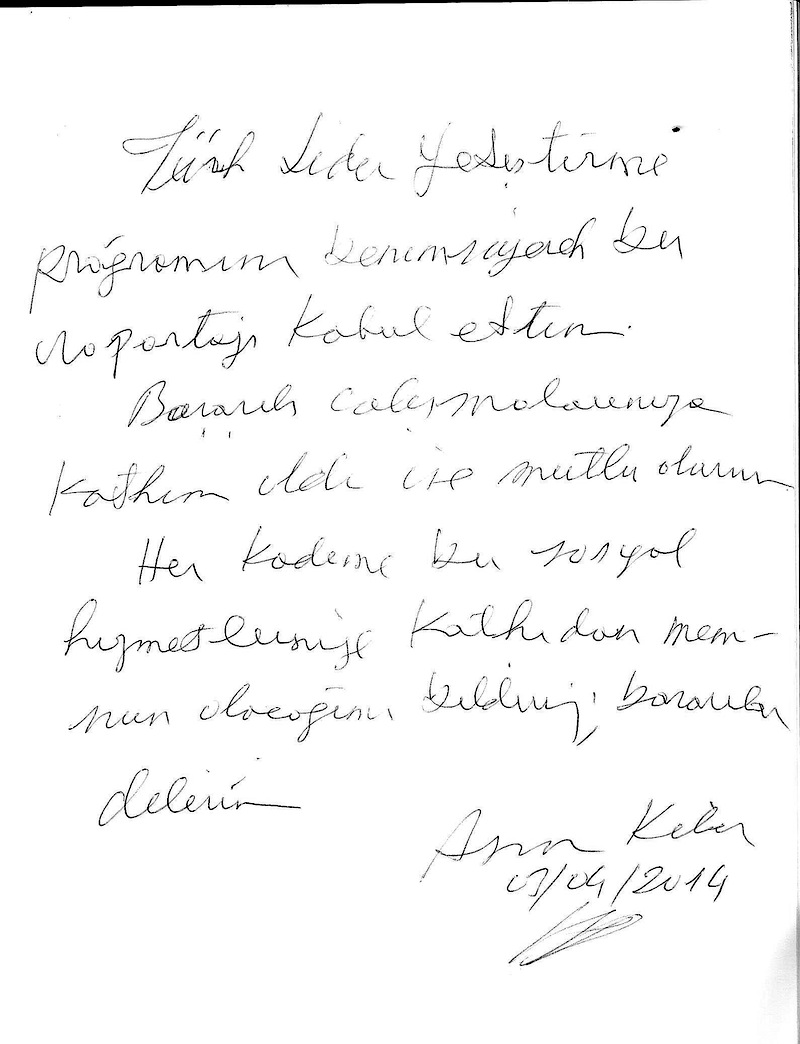 Türk Lider Yetiştirme
programını benimsiyerek bu
roportajı Kabul ettim.
Başarılı çalışmalarınıza
Katkım oldu ise mutlu olurum
Her Kademe bu sosyal
hizmetlerinize Katkıdan mem-
nun olacağımı bildirir, başarılar
dilerim
03/04/2014